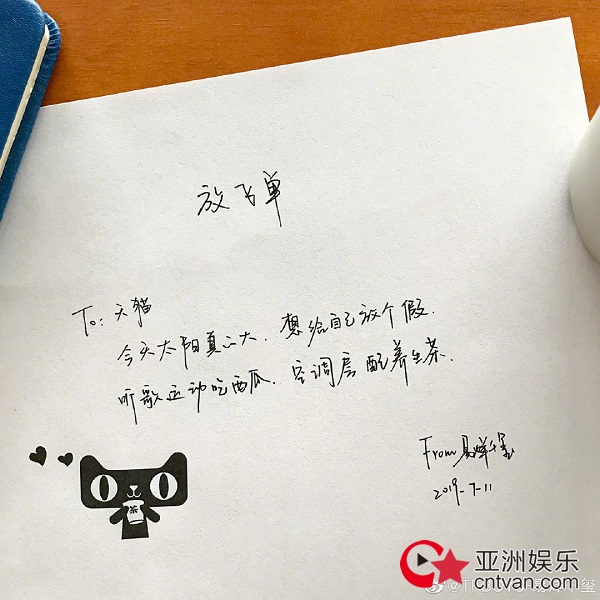 放飞单
To: 天猫
今天太阳真心大. 想给自己放个假.
听歌运动吃西瓜. 空调房配养生茶.
From 易烊千玺
2019-7-11
茶
亚洲娱乐
cntvan.com